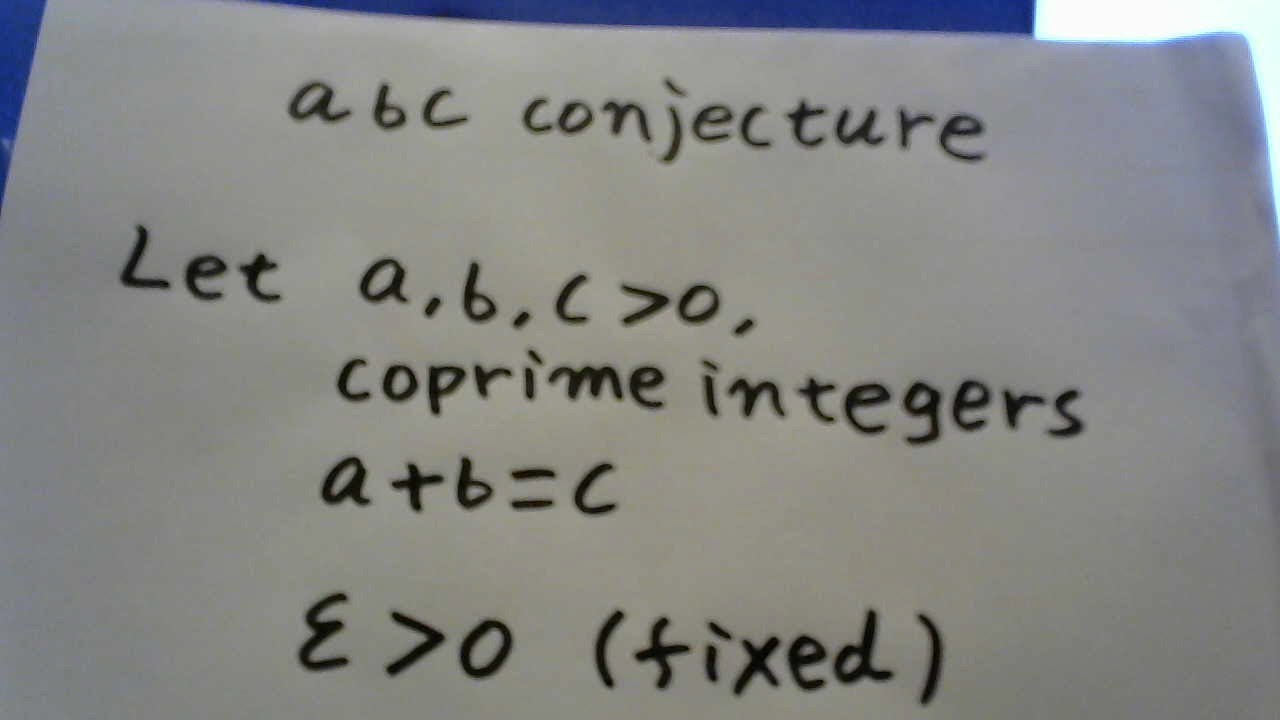 abc conjecture
Let a, b, c > 0,
coprime integers
a + b = c
ε > 0 (fixed)